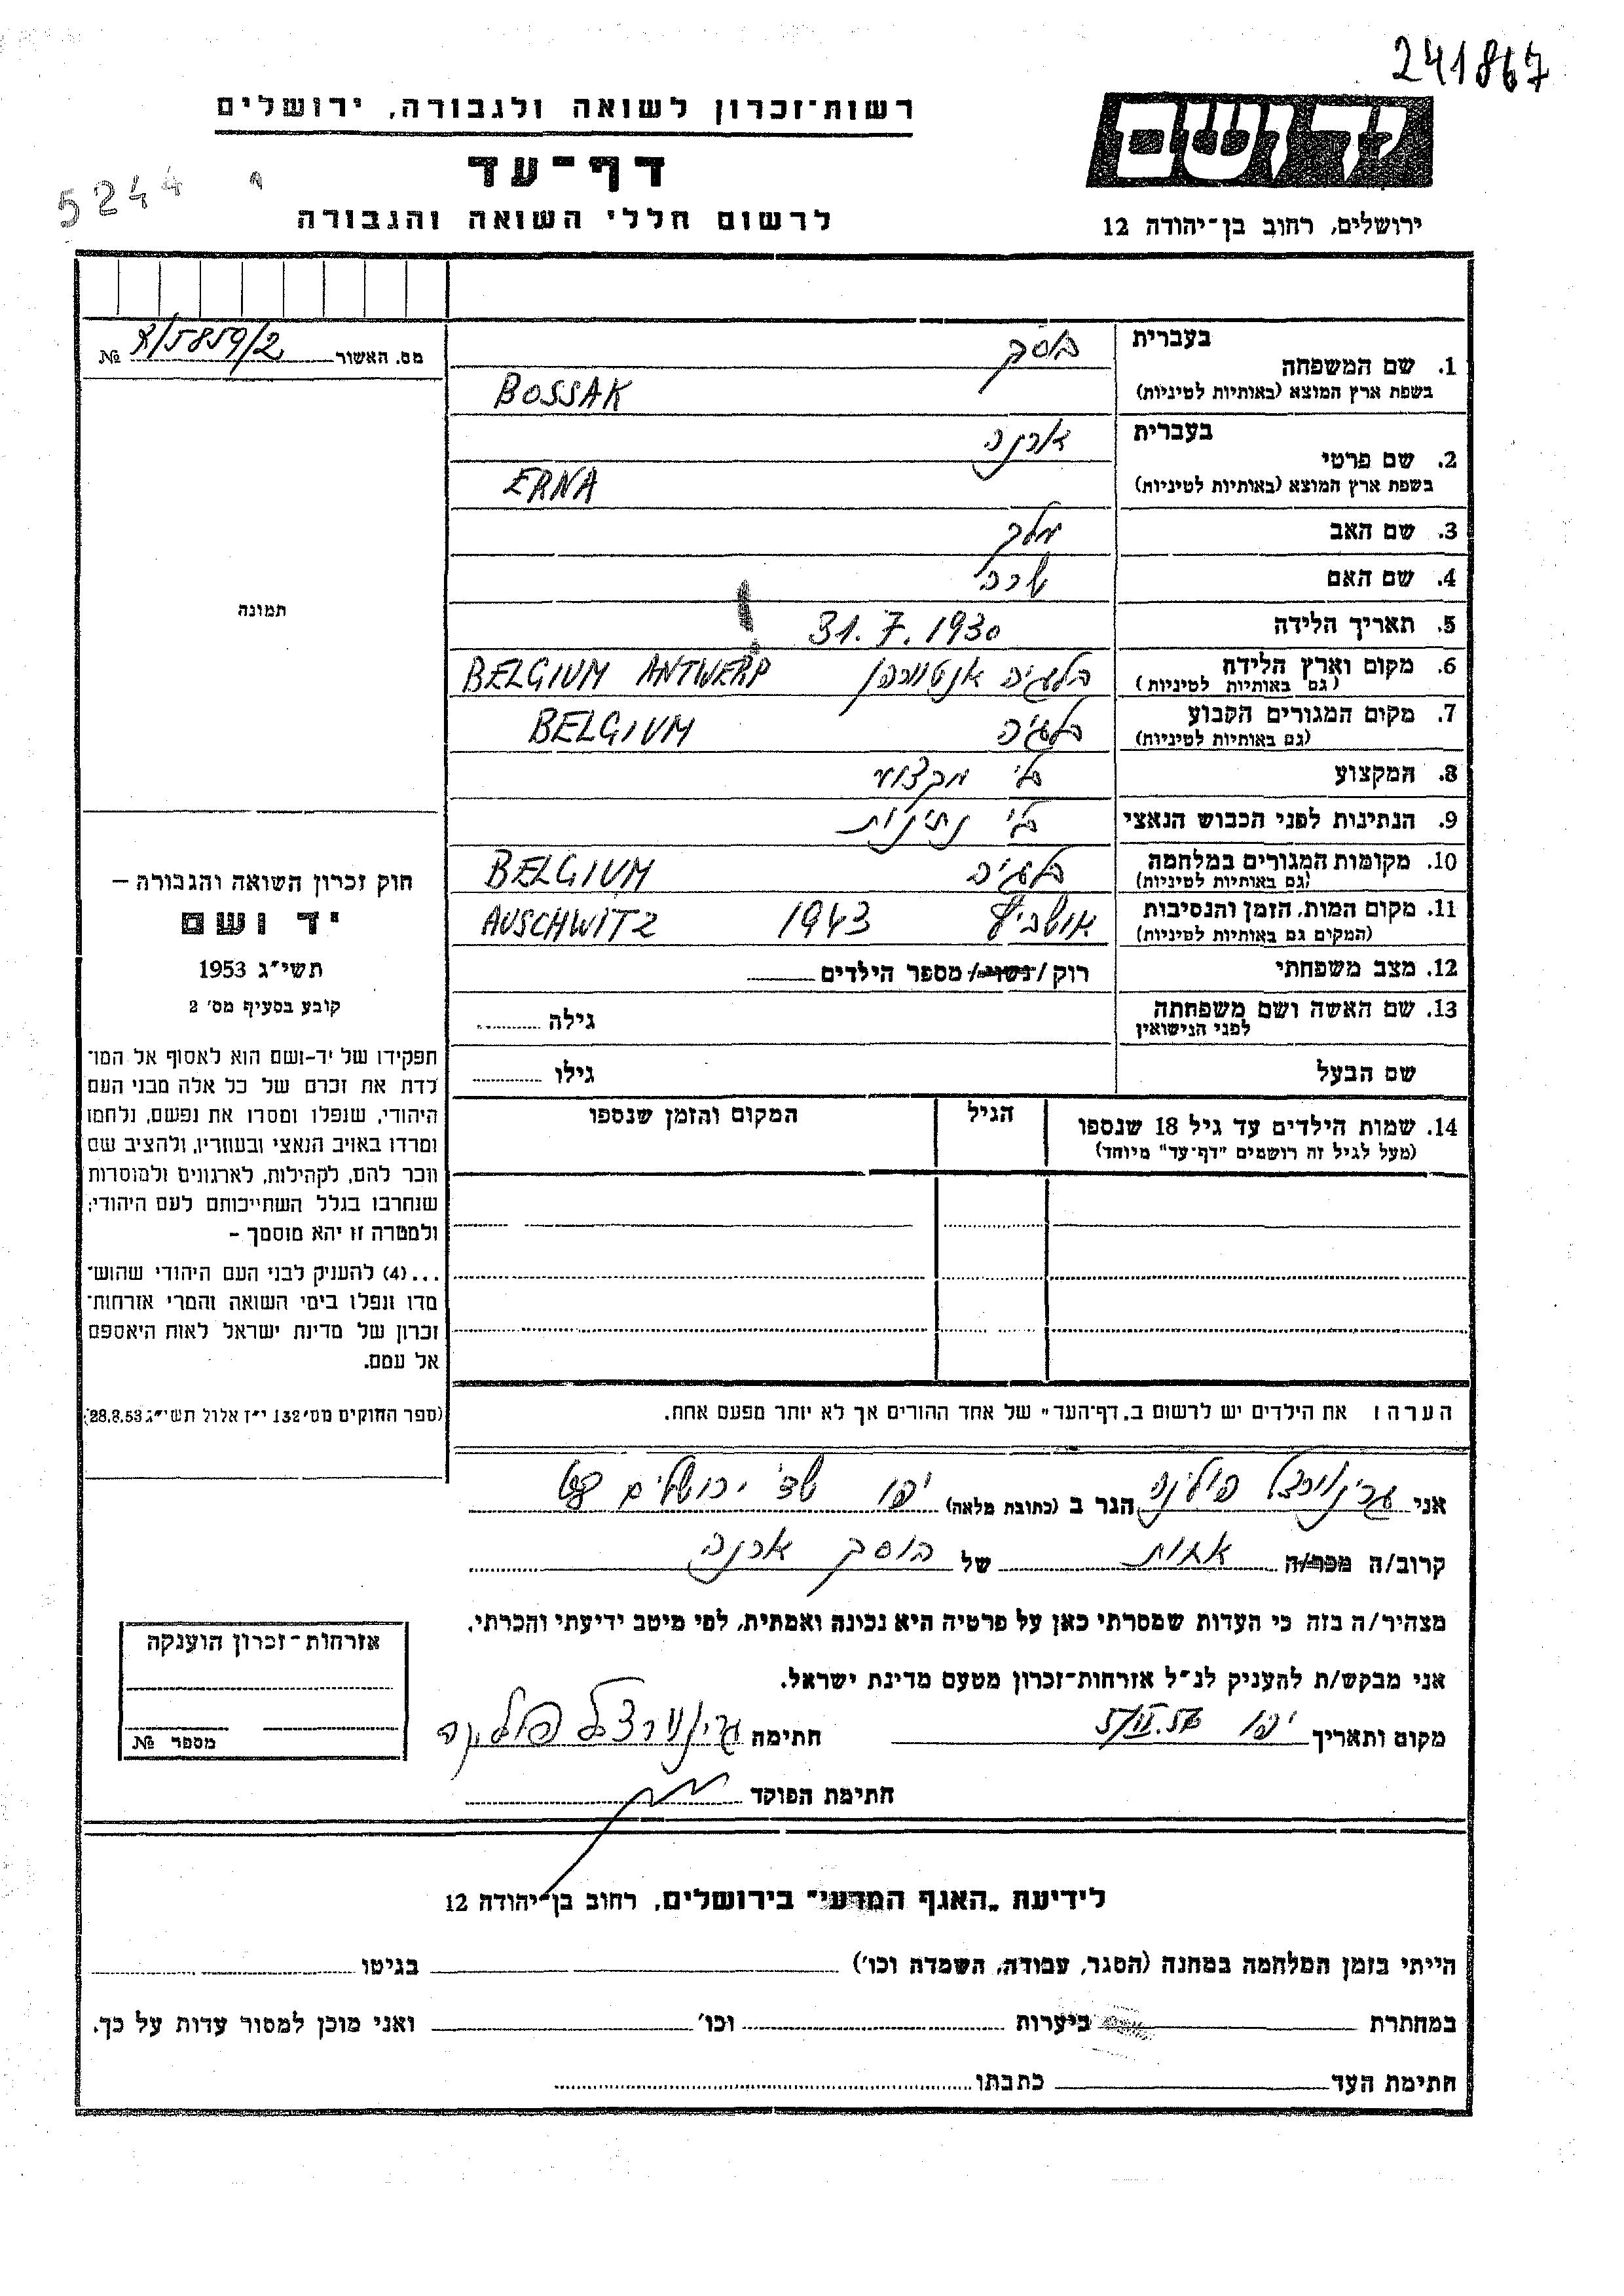 241867
רשות־זכרון לשואה ולגבורה, ירושלים
יד ושם
דף־עד
5244
לרשום חללי השואה והגבורה
ירושלים, רחוב בן־יהודה 12
מס. האשור № א/5859/2
1. שם המשפחה בעברית בוסק
בשפת ארץ המוצא (באותיות לטיניות) BOSSAK
2. שם פרטי בעברית ארנה
בשפת ארץ המוצא (באותיות לטיניות) ERNA
3. שם האב מלך
4. שם האם
5. תאריך הלידה 31.7.1930
6. מקום וארץ הלידה בלגיה אנטוורפן BELGIUM ANTWERP
(גם באותיות לטיניות)
7. מקום המגורים הקבוע בלגיה BELGIUM
(גם באותיות לטיניות)
8. המקצוע בלי מקצוע
9. הנתינות לפני הכבוש הנאצי בלי נתינות
10. מקומות המגורים במלחמה בלגיה BELGIUM
(גם באותיות לטיניות)
11. מקום המות, הזמן והנסיבות אושביץ 1943 AUSCHWITZ
(המקום גם באותיות לטיניות)
12. מצב משפחתי רוק/נשוי/מספר הילדים
13. שם האשה ושם משפחתה גילה
לפני הנישואין
שם הבעל גילו
14. שמות הילדים עד גיל 18 שנספו הגיל המקום והזמן שנספו
(מעל לגיל זה רושמים "דף־עד" מיוחד)
תמונה
חוק זכרון השואה והגבורה –
יד ושם
תשי"ג 1953
קובע בסעיף מס' 2
תפקידו של יד-ושם הוא לאסוף אל המו־
לדת את זכרם של כל אלה מבני העם
היהודי, שנפלו ומסרו את נפשם, נלחמו
ומרדו באויב הנאצי ובעוזריו, ולהציב שם
וזכר להם, לקהילות, לארגונים ולמוסדות
שנחרבו בגלל השתייכותם לעם היהודי;
ולמטרה זו יהא מוסמך –
...(4) להעניק לבני העם היהודי שהוש־
מדו ונפלו בימי השואה והמרי אזרחות־
זכרון של מדינת ישראל לאות היאספם
אל עמם.
(ספר החוקים מס' 132 י"ז אלול תשי"ג 28.8.53)
הערה: את הילדים יש לרשום ב„דף־העד" של אחד ההורים אך לא יותר מפעם אחת.
אני גרינוורצל פולינה הגר ב (כתובת מלאה) יפו שד' ירושלים
קרוב/ה מכר/ה אחות של בוסק ארנה
מצהיר/ה בזה כי העדות שמסרתי כאן על פרטיה היא נכונה ואמתית, לפי מיטב ידיעתי והכרתי.
אני מבקש/ת להעניק לנ"ל אזרחות־זכרון מטעם מדינת ישראל.
מקום ותאריך יפו חתימה גרינוורצל פולינה
חתימת הפוקד
אזרחות־זכרון הוענקה
מספר №
לידיעת „האגף המדעי" בירושלים, רחוב בן־יהודה 12
הייתי בזמן המלחמה במחנה (הסגר, עבודה, השמדה וכו') בגיטו
במחתרת ביערות וכו' ואני מוכן למסור עדות על כך.
חתימת העד כתבתו